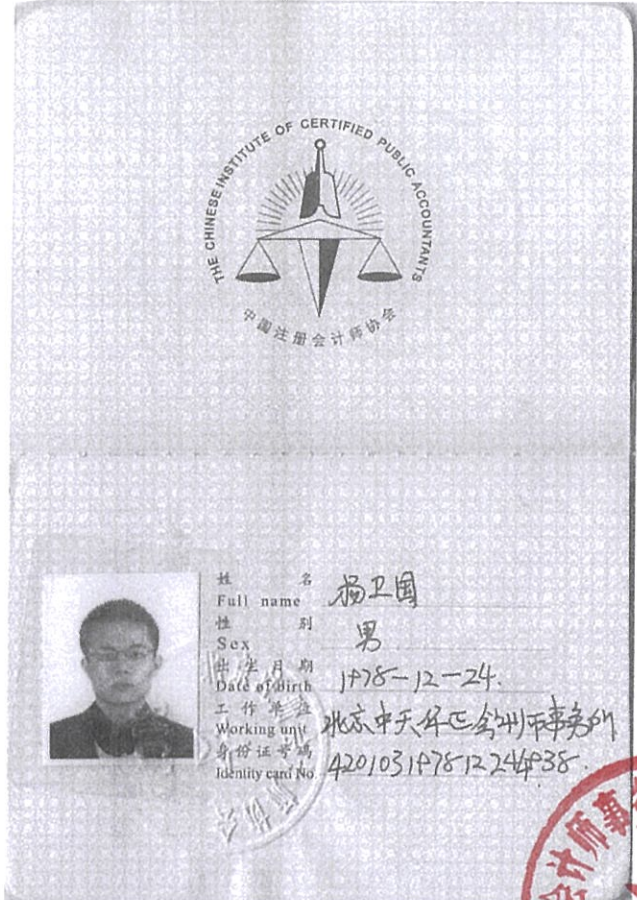 THE CHINESE INSTITUTE OF CERTIFIED PUBLIC ACCOUNTANTS
中国注册会计师协会
姓 名
Full name 杨卫国
性 别
Sex 男
出 生 日 期
Date of Birth 1978-12-24.
工 作 单 位
Working unit 北京中天华正会计师事务所
身 份 证 号 码
Identity card No. 420103197812244938.
会计师事